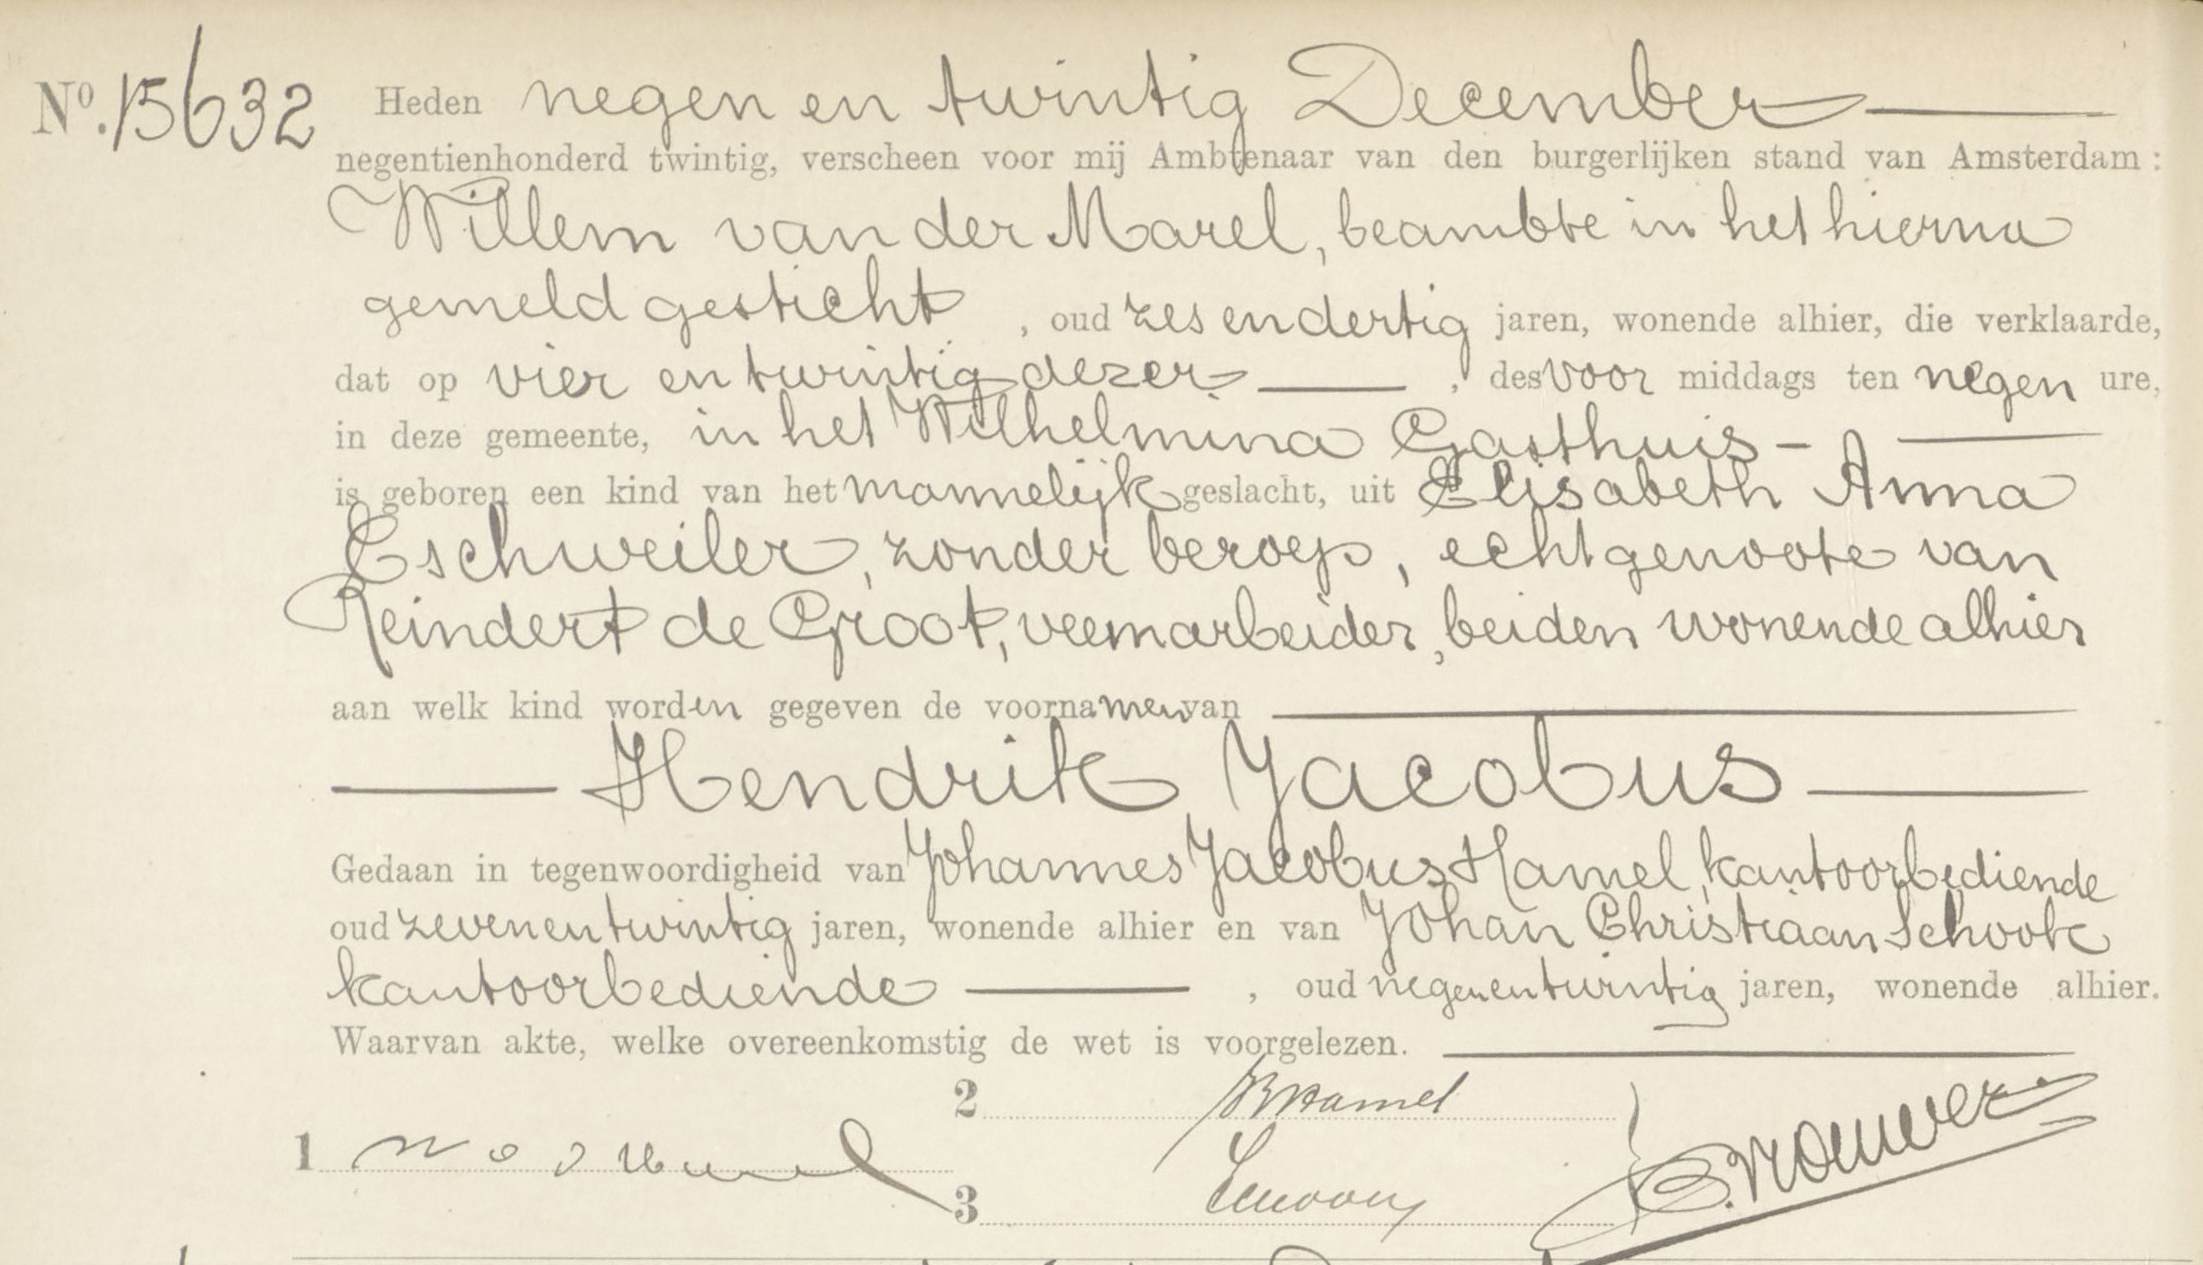 Nº. 15632 Heden negen en twintig December
negentienhonderd twintig, verscheen voor mij Ambtenaar van den burgerlijken stand van Amsterdam:
Willem van der Marel, beambte in het hierna
gemeld gesticht, oud zes en dertig jaren, wonende alhier, die verklaarde,
dat op vier en twintig dezer, des voor middags ten negen ure,
in deze gemeente, in het Wilhelmina Gasthuis-
is geboren een kind van het mannelijk geslacht, uit Elisabeth Anna
Eschweiler, zonder beroep, echtgenoote van
Reindert de Groot, veemarbeider, beiden wonende alhier
aan welk kind worden gegeven de voornamen van
Hendrik Jacobus
Gedaan in tegenwoordigheid van Johannes Jacobus Hamel, kantoorbediende
oud zevenentwintig jaren, wonende alhier en van Johan Christiaan Schook
kantoorbediende, oud negenentwintig jaren, wonende alhier.
Waarvan akte, welke overeenkomstig de wet is voorgelezen.
2 Hamel
1
3
Brouwer